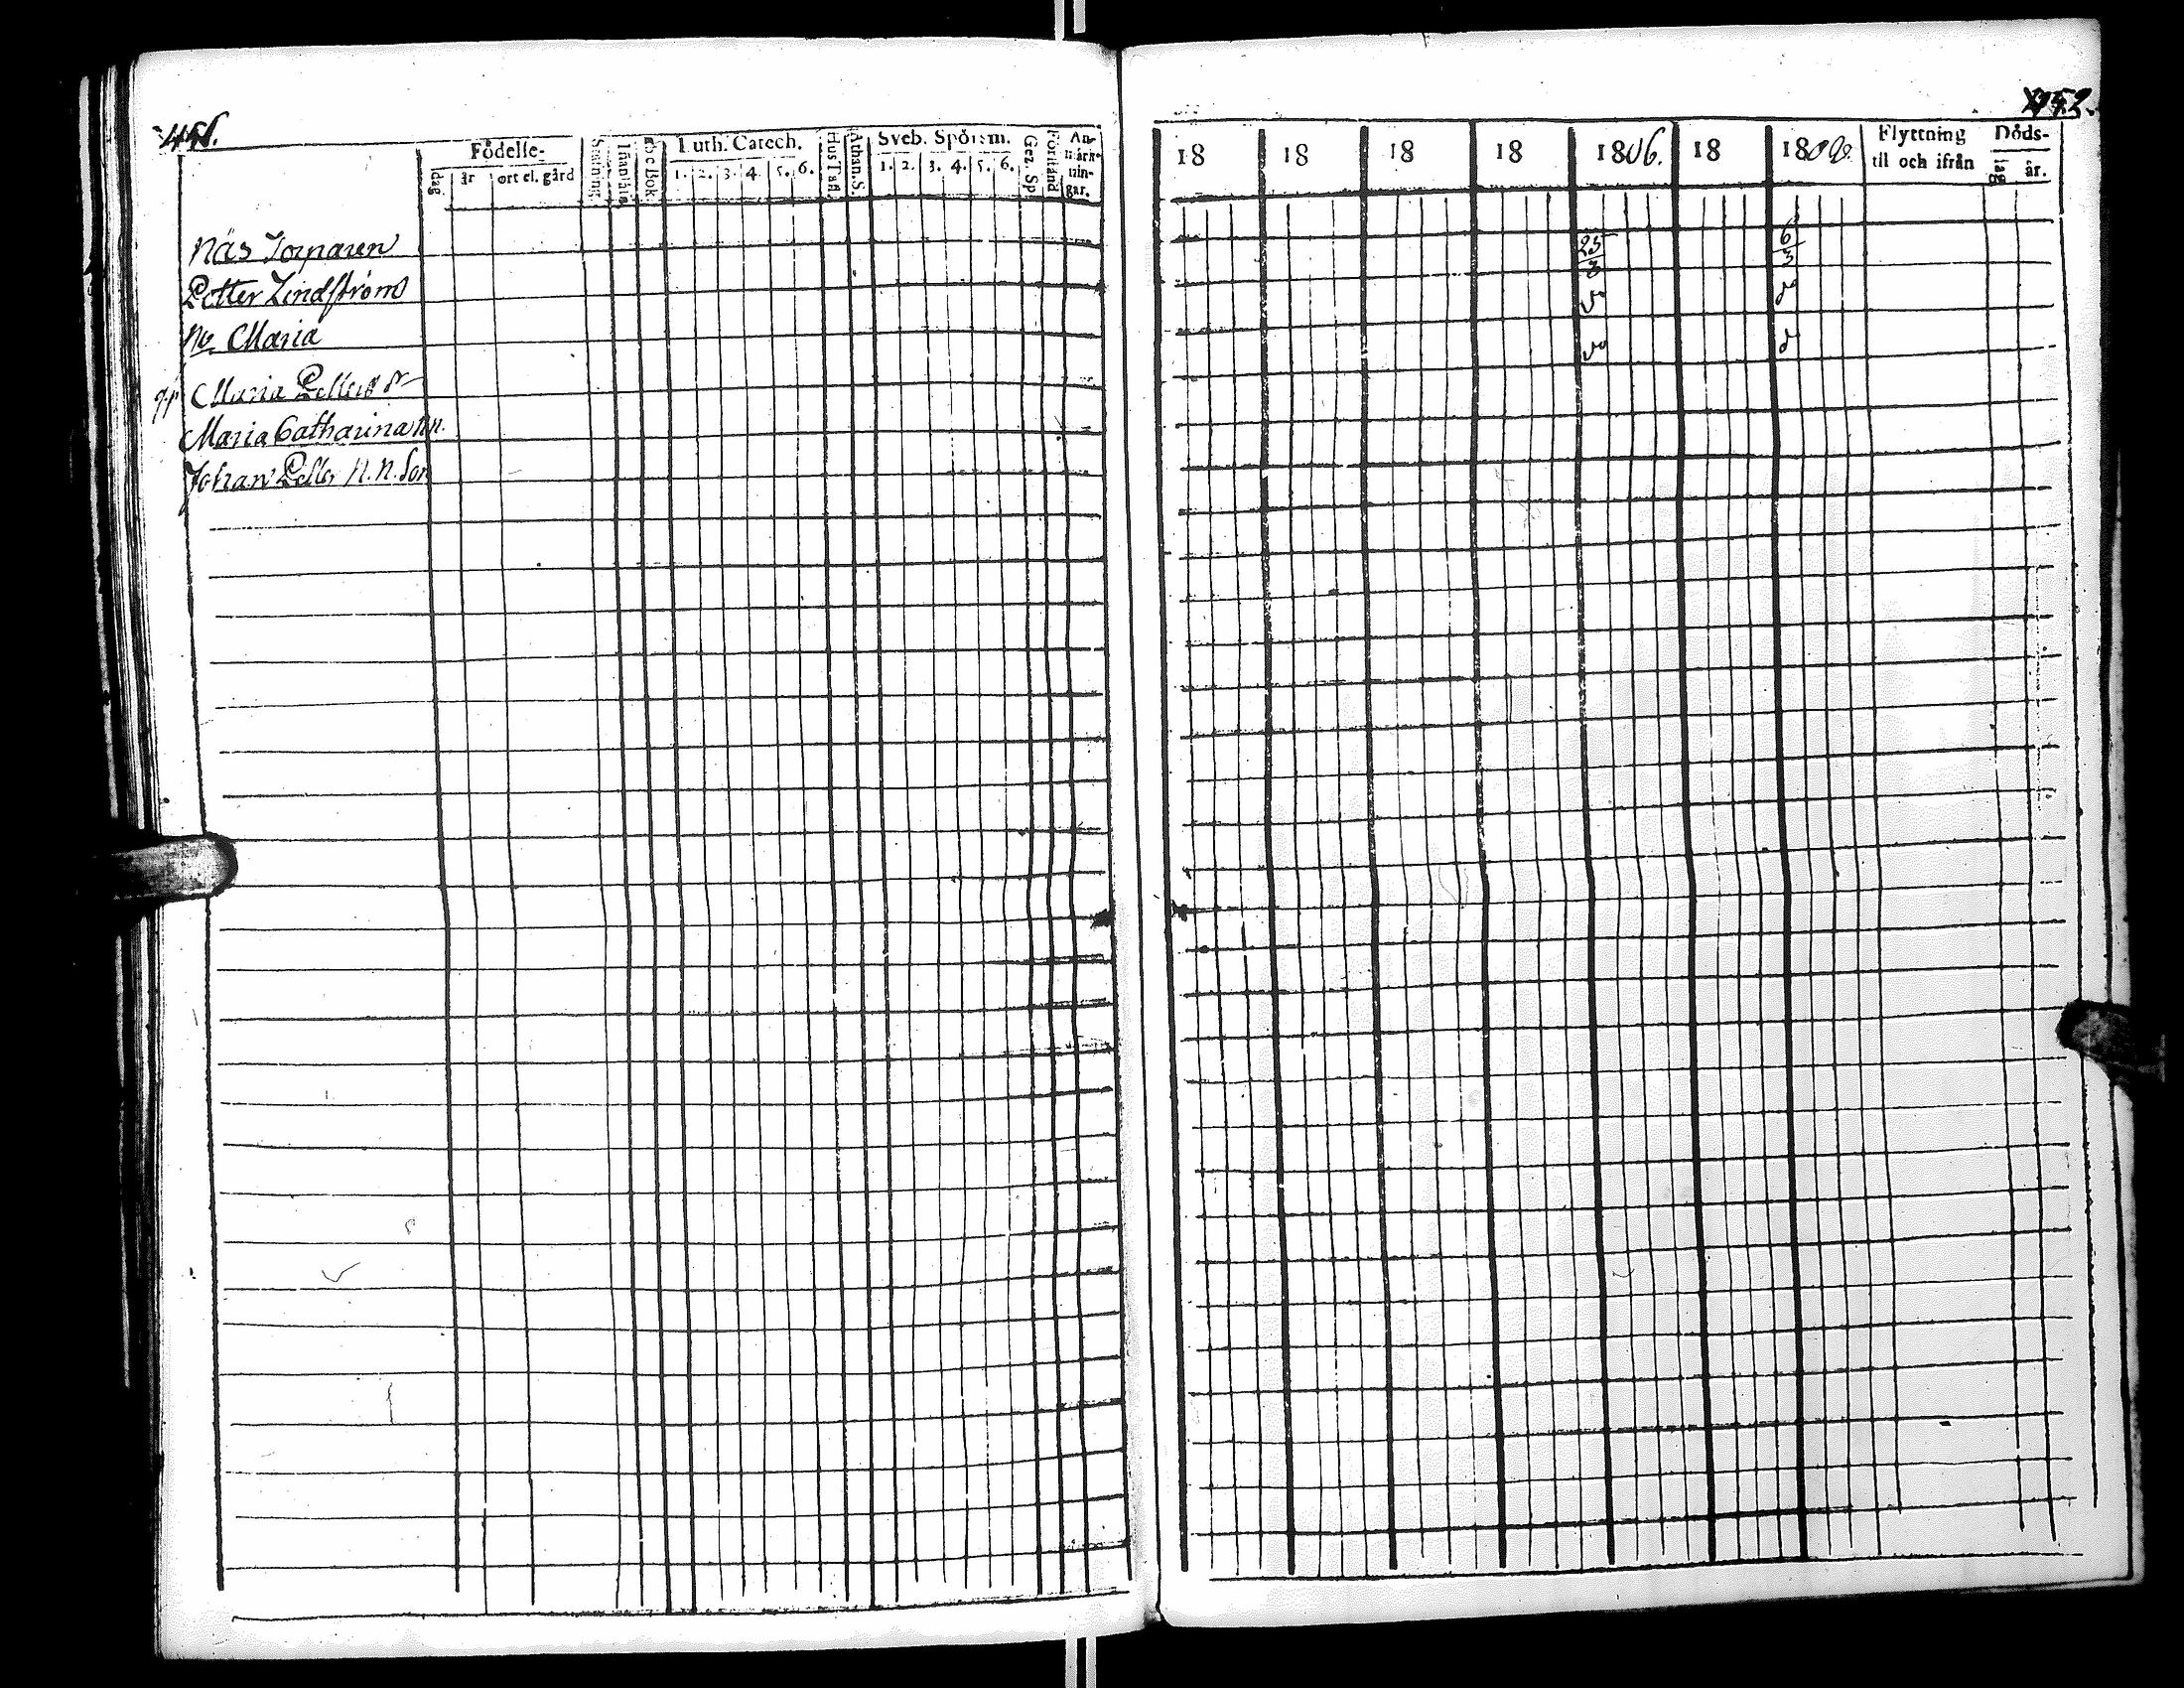 Födelse-
dag år ort el. gård
Stafning
Innanläsn
Abc Bok
Luth. Catech.
1. 2. 3. 4. 5. 6.
Hus Tafl.
Athan. S.
Sveb. Spörsm.
1. 2. 3. 4. 5. 6.
Gez. Sp
Förstånd
An-
märk-
nin-
gar.
Näs Torparen
Petter Lindström
Maria
Maria
Maria Catharina N.N.
Johan N.N. Son
18 18 18 18 1806. 18 18
Flyttning
til och ifrån
Döds-
dag år.
25 6
3 3